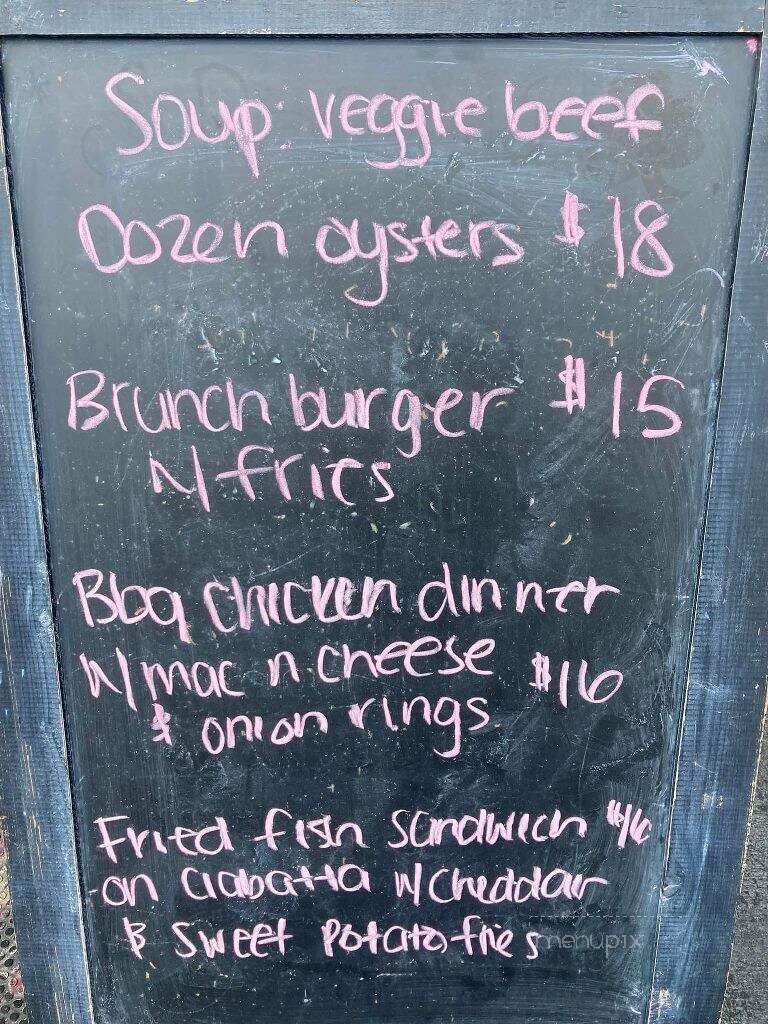 Soup: veggie beef
Dozen oysters $18
Brunch burger $15
w/ fries
Bbq chicken dinner
w/ mac n cheese $16
& onion rings
Fried fish sandwich $16
on ciabatta w/ cheddar
& sweet potato fries
menupix